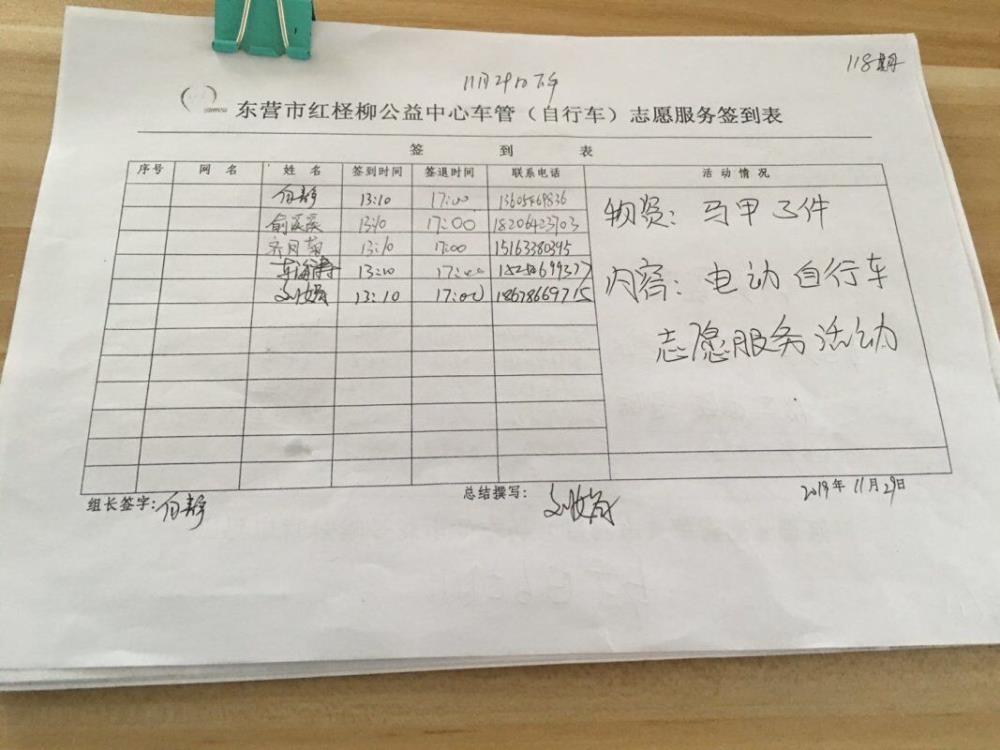 118期
11月29日下午
东营市红柽柳公益中心车管（自行车）志愿服务签到表
签 到 表
序号 网 名 姓 名 签到时间 签退时间 联系电话 活 动 情 况
白静 13:10 17:00
13:10 17:00 18206423703
13:10 17:00 15163380395
13:10 17:00
13:10 17:00 18678669715
物资：马甲5件
内容：电动自行车
志愿服务活动
组长签字：白静 总结撰写： 2019年11月29日